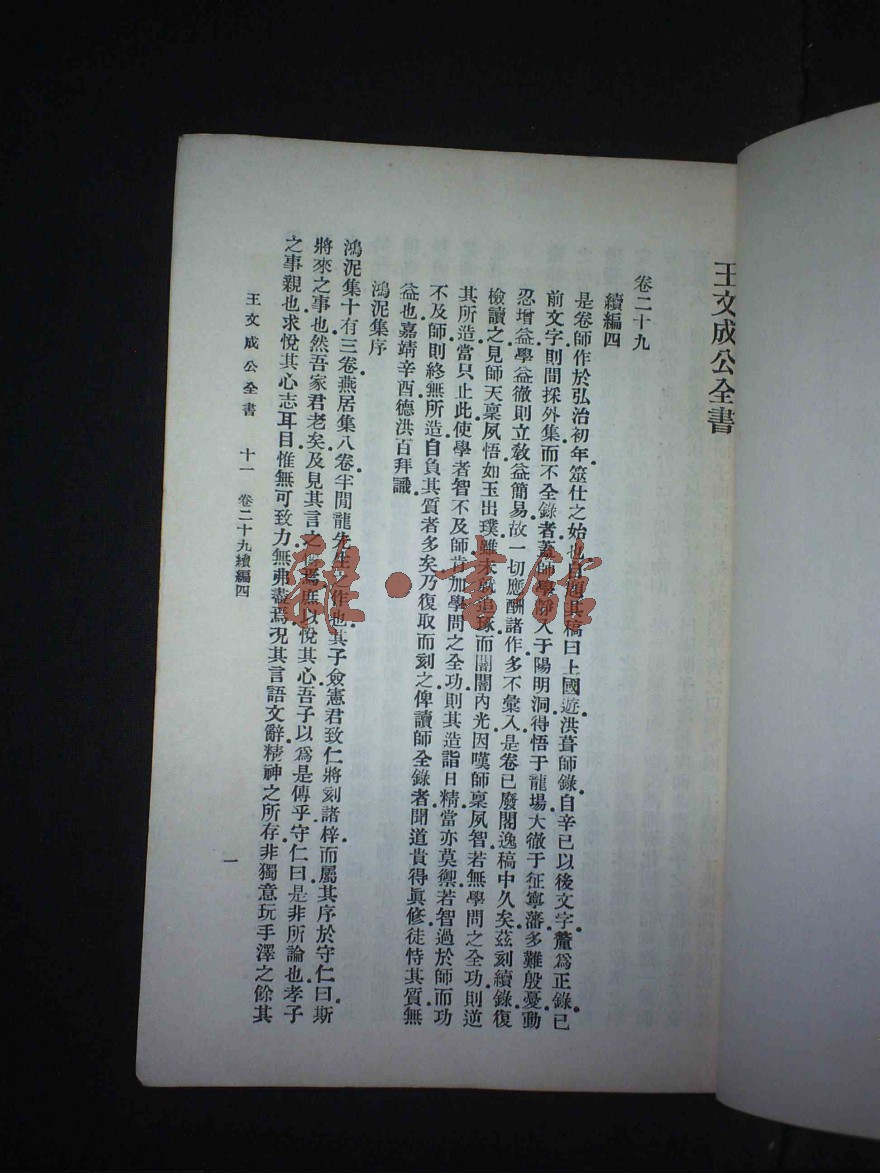 王文成公全書
卷二十九
續編四
是卷師作於弘治初年筮仕之始也自題其稿曰上國遊洪葺師錄自辛巳以後文字釐爲正錄已
前文字則間採外集而不全錄者蓋師學靜入于陽明洞得悟于龍場大徹于征寧藩多難殷憂動
忍增益學益徹則立教益簡易故一切應酬諸作多不彙入是卷已廢閣逸稿中久矣茲刻續錄復
檢讀之見師天稟夙悟如玉出璞雖未就追琢而闇闇內光因嘆師稟夙智若無學問之全功則逆
其所造當只止此使學者智不及師肯加學問之全功則其造詣日精當亦莫禦若智過於師而功
不及師則終無所造自負其質者多矣乃復取而刻之俾讀師全錄者聞道貴得眞修徒恃其質無
益也嘉靖辛酉德洪百拜識
鴻泥集序
鴻泥集十有三卷燕居集八卷半閒龍先生之作也其子僉憲君致仁將刻諸梓而屬其序於守仁曰斯
將來之事也然吾家君老矣及見其言之傳焉庶以悅其心吾子以爲是傳乎守仁曰是非所論也孝子
之事親也求悅其心志耳目惟無可致力無弗盡焉况其言語文辭精神之所存非獨意玩手澤之餘其
王文成公全書 十一 卷二十九續編四
一
雜·書館